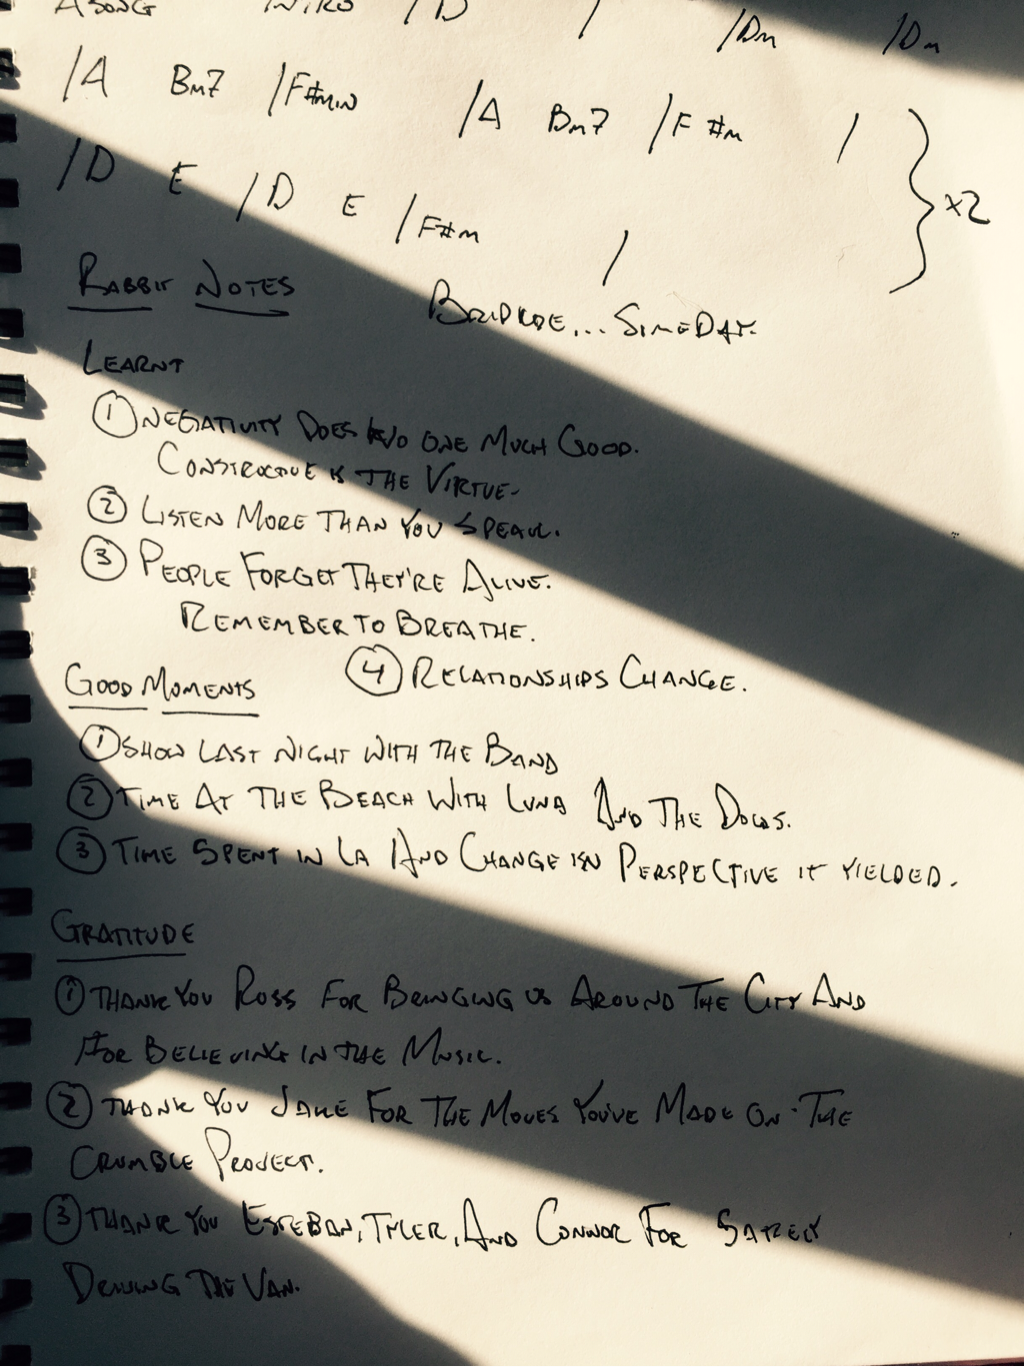 A SONG INTRO /D / /Dm /Dm
/A Bm7 /F#MIN /A Bm7 /F#m /
/D E /D E /F#m / } x2
RABBIT NOTES
BRIDGE... SOMEDAY.
LEARNT
① NEGATIVITY DOES NO ONE MUCH GOOD.
CONSTRUCTIVE IS THE VIRTUE-
② LISTEN MORE THAN YOU SPEAK.
③ PEOPLE FORGET THEY'RE ALIVE.
REMEMBER TO BREATHE.
④ RELATIONSHIPS CHANGE.
GOOD MOMENTS
① SHOW LAST NIGHT WITH THE BAND
② TIME AT THE BEACH WITH LUNA AND THE DOGS.
③ TIME SPENT IN LA AND CHANGE ISN PERSPECTIVE IT YIELDED.
GRATITUDE
① THANK YOU ROSS FOR BRINGING US AROUND THE CITY AND
FOR BELIEVING IN THE MUSIC.
② THANK YOU JAKE FOR THE MOVES YOU'VE MADE ON THE
CRUMBLE PROJECT.
③ THANK YOU ESTEBAN, TYLER, AND CONNOR FOR SAFELY
DRIVING THE VAN.